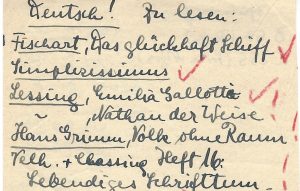 Deutsch! Zu lesen:
Fischart, Das glückhaft Schiff
Simplizissimus
Lessing, Emilia Galotti
" , Nathan der Weise
Hans Grimm, Volk ohne Raum
Velh. + Heft 16:
Lebendiges Schrifttum.